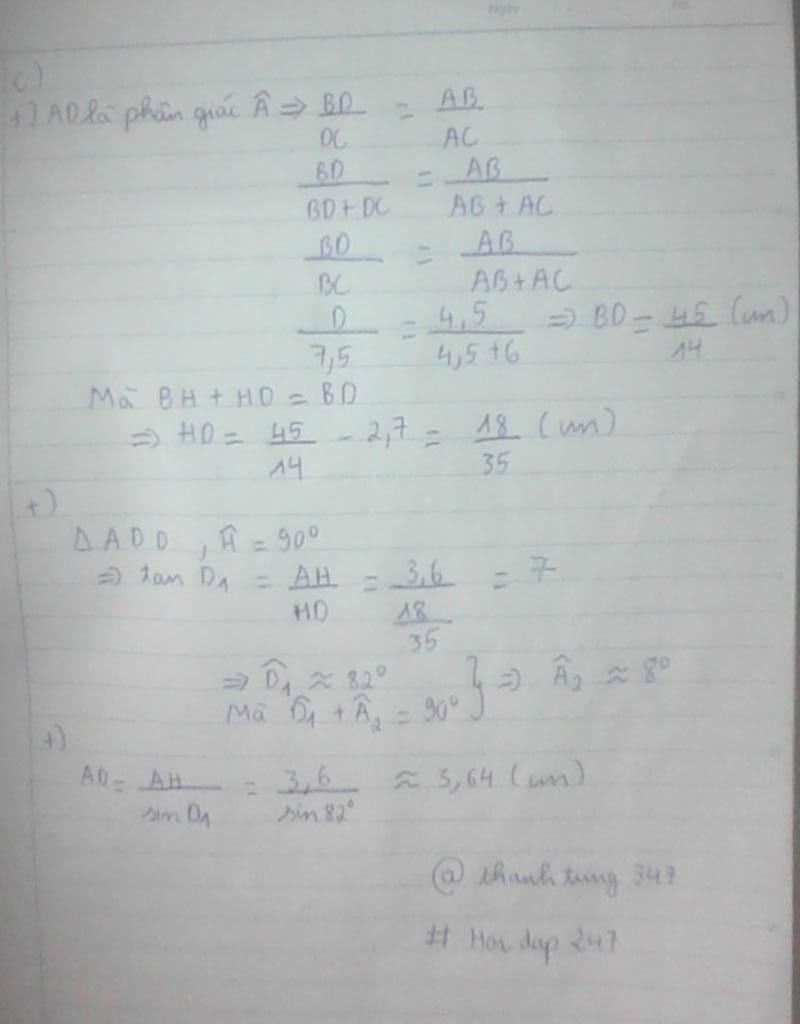 Ngày No.
c)
+) AD là phân giác Â ⇒ BD/DC = AB/AC
BD/(BD + DC) = AB/(AB + AC)
BD/BC = AB/(AB + AC)
D/7,5 = 4,5/(4,5 + 6) ⇒ BD = 45/14 (cm)
Mà BH + HD = BD
⇒ HD = 45/14 - 2,7 = 18/35 (cm)
+)
Δ ADD , Ĥ = 90°
⇒ tan D₁ = AH/HD = 3,6/(18/35) = 7
⇒ D̂₁ ≈ 82° } ⇒ Â₂ ≈ 8°
Mà D̂₁ + Â₂ = 90°
+)
AD = AH/sin D₁ = 3,6/sin 82° ≈ 3,64 (cm)
@ thanh tung 347
# Hoi dap 247